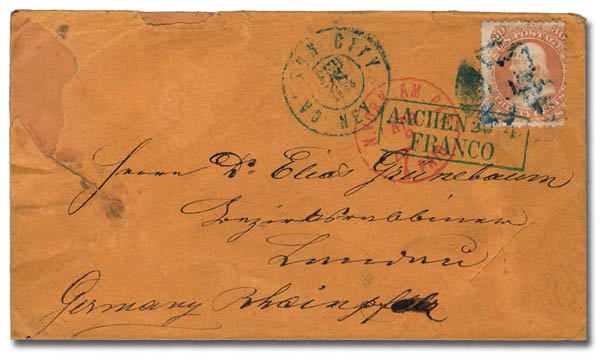 CARSON CITY
NEV
N. YORK AM.
AACHEN 30 4
FRANCO
Herrn Dr Elias Grünebaum
Bezirksrabbiner
Landau
Germany Rheinpfalz